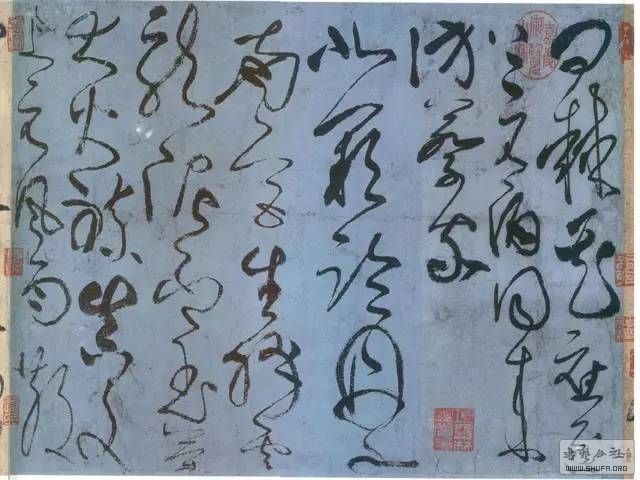 問棘花應逐
上元酒同來
訪蔡家
北闕臨丹水
南宮生絳雲
龍泥印玉簡
大火煉真文
上元風雨散
WWW.SHUFA.ORG